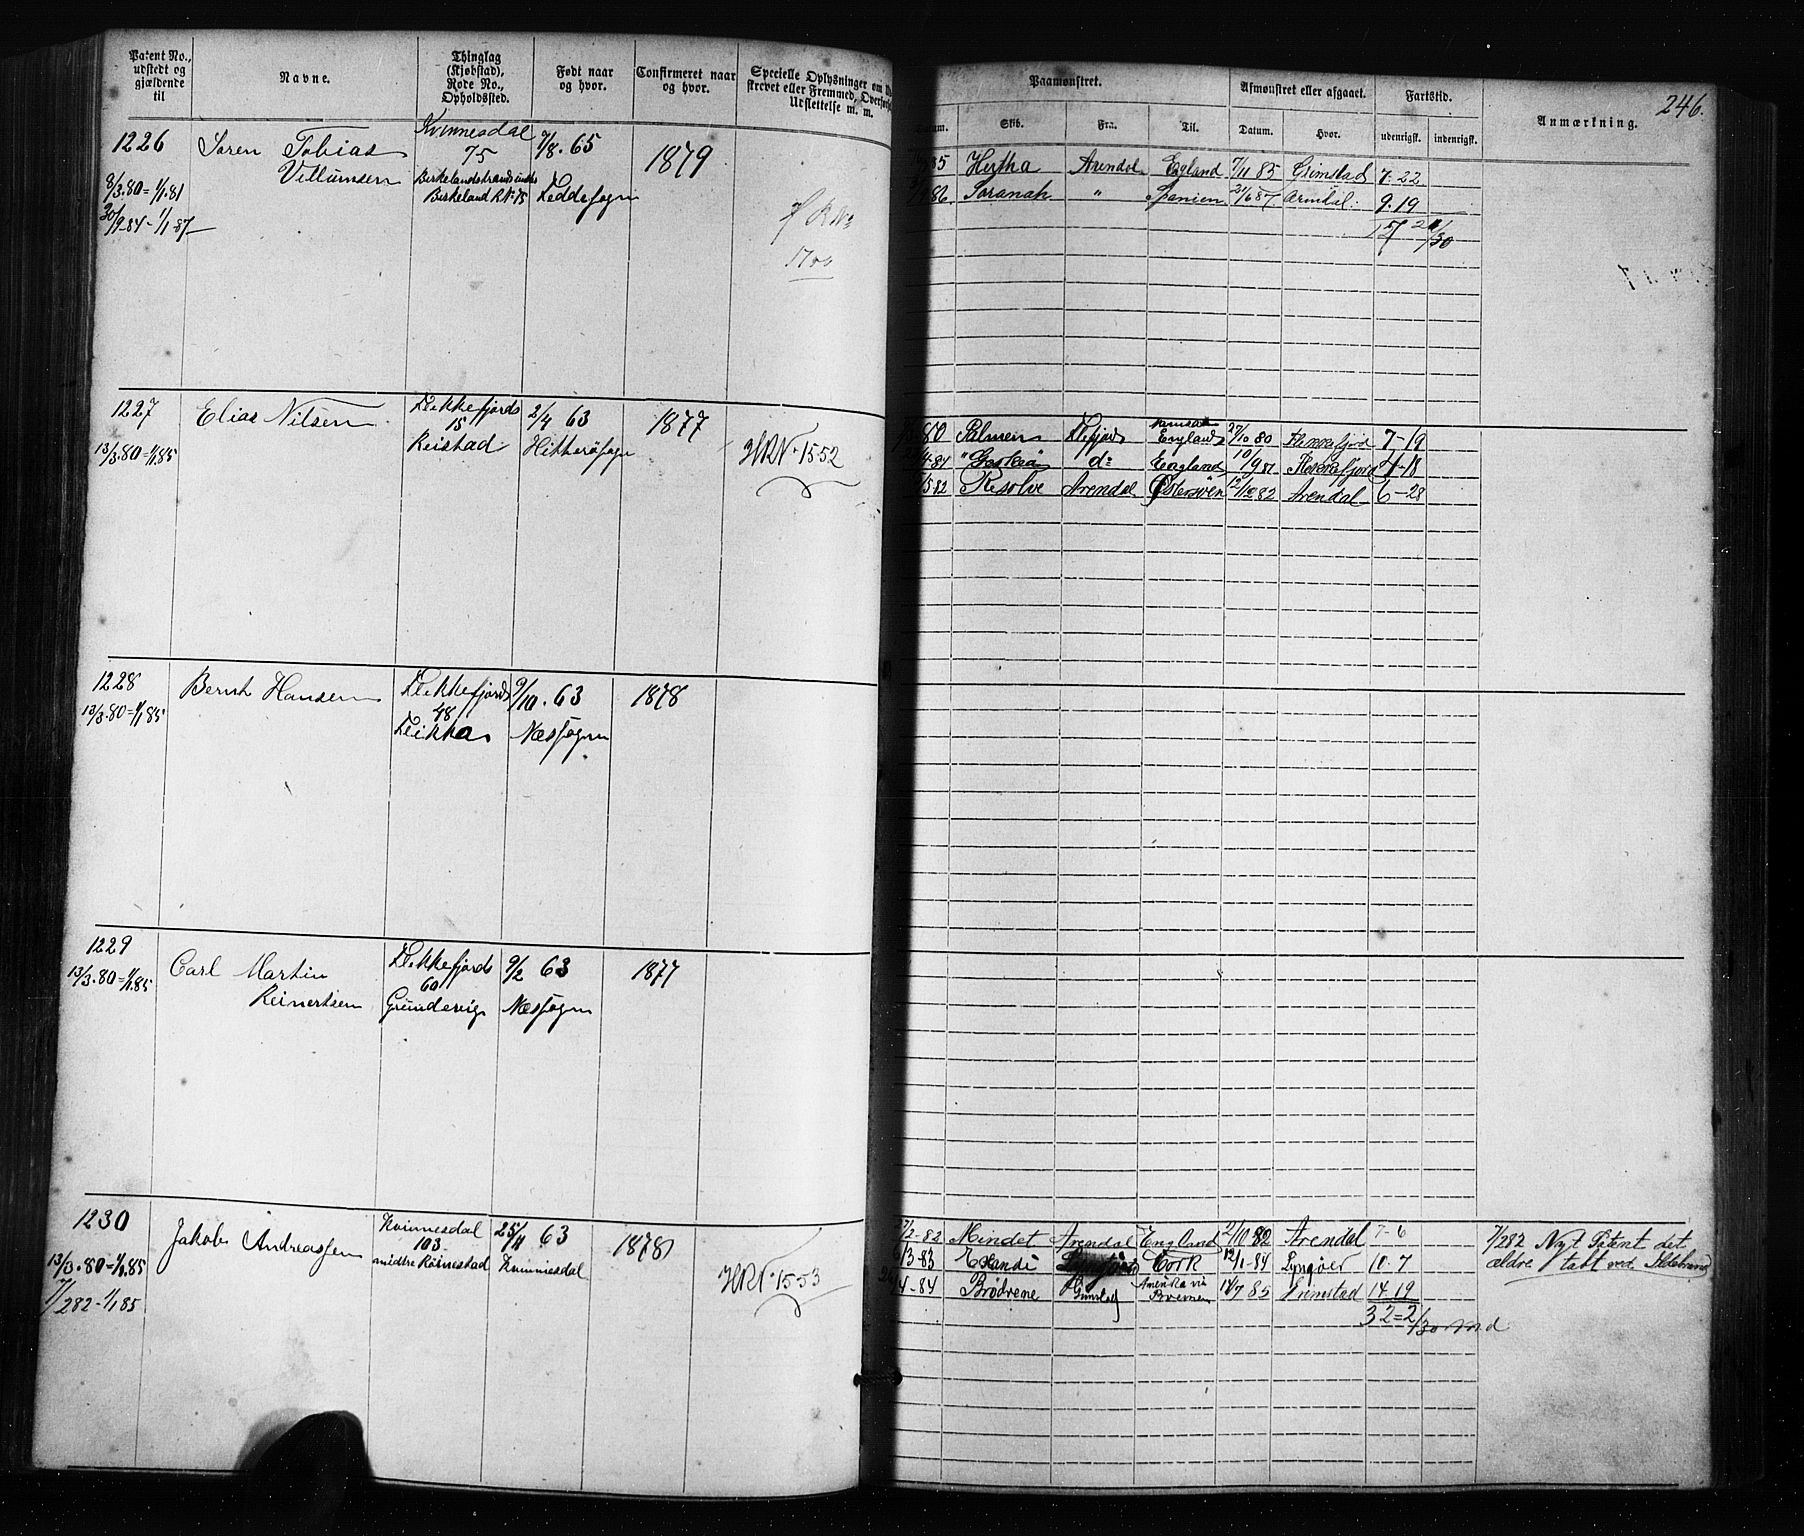 Patent No.,
udstedt og
gjældende
til
Navne.
Thinglag
(Kjøbstad),
Rode No.,
Opholdssted.
Født naar
og hvor.
Confirmeret naar
og hvor.
Specielle Oplysninger om
strevet eller Fremmed,
Udslettelse m. m.
Paamønstret.
Skib.
Fra.
Til.
Afmønstret eller afgaaet.
Datum.
Hvor.
Fartstid.
udenrigst.
indenrigst.
Anmærkning.
246.
1226
8/3.80=1/1.81
30/9 84-1/1-87
Søren Tobias
Villumsen
Kvinnesdal
75
Birkeland R.N. 75
9/8. 65
Feddesogn
1879
1700
85 Hertha Arendal England 7/11 85 Grimstad 7. 22
86 Saranak " Spanien 21/6 87 Arendal. 9. 19
1227
13/3.80=1/1.85
Elias Nilsen
Flekkefjords
15
Reistad
2/4 63
Hitterøsogn
1877
HRN. 1552
80 Palmen England 27/10 80 Flekkefjord 7-19
do England 10/9 81 Flekkefjord 4-18
5 82 Resolve Arendal Østersøen 12/12 82 Arendal 6-28
1228
13/3.80=1/1 85
Bernh Hansen
Flekkefjords
48
Flikka
9/10. 63
Næssogn
1878
1229
13/3.80=1/1.85
Carl Martin
Reinertsen
Flekkefjords
60
Grundevig
9/2 63
Næssogn
1877
1230
13/3.80=1/1.85
7/2 82-1/1 85
Jakob Andreassen
Kvinnesdal
103
midtre Röinestad
25/11 63
Kvinnesdal
1878
HRN. 1553
/2-82 Mindet Arendal England 2/10 82 Arendal 7-6
/3-83 Cork 12/1-84 Lyngøer 10-7
/4-84 Brødrene Grimstad Amerika via
Bremen 14/7 85 Grimstad 14 19
32=2/30 Md
7/2 82 Nyt Patent det
ældre tabt ved